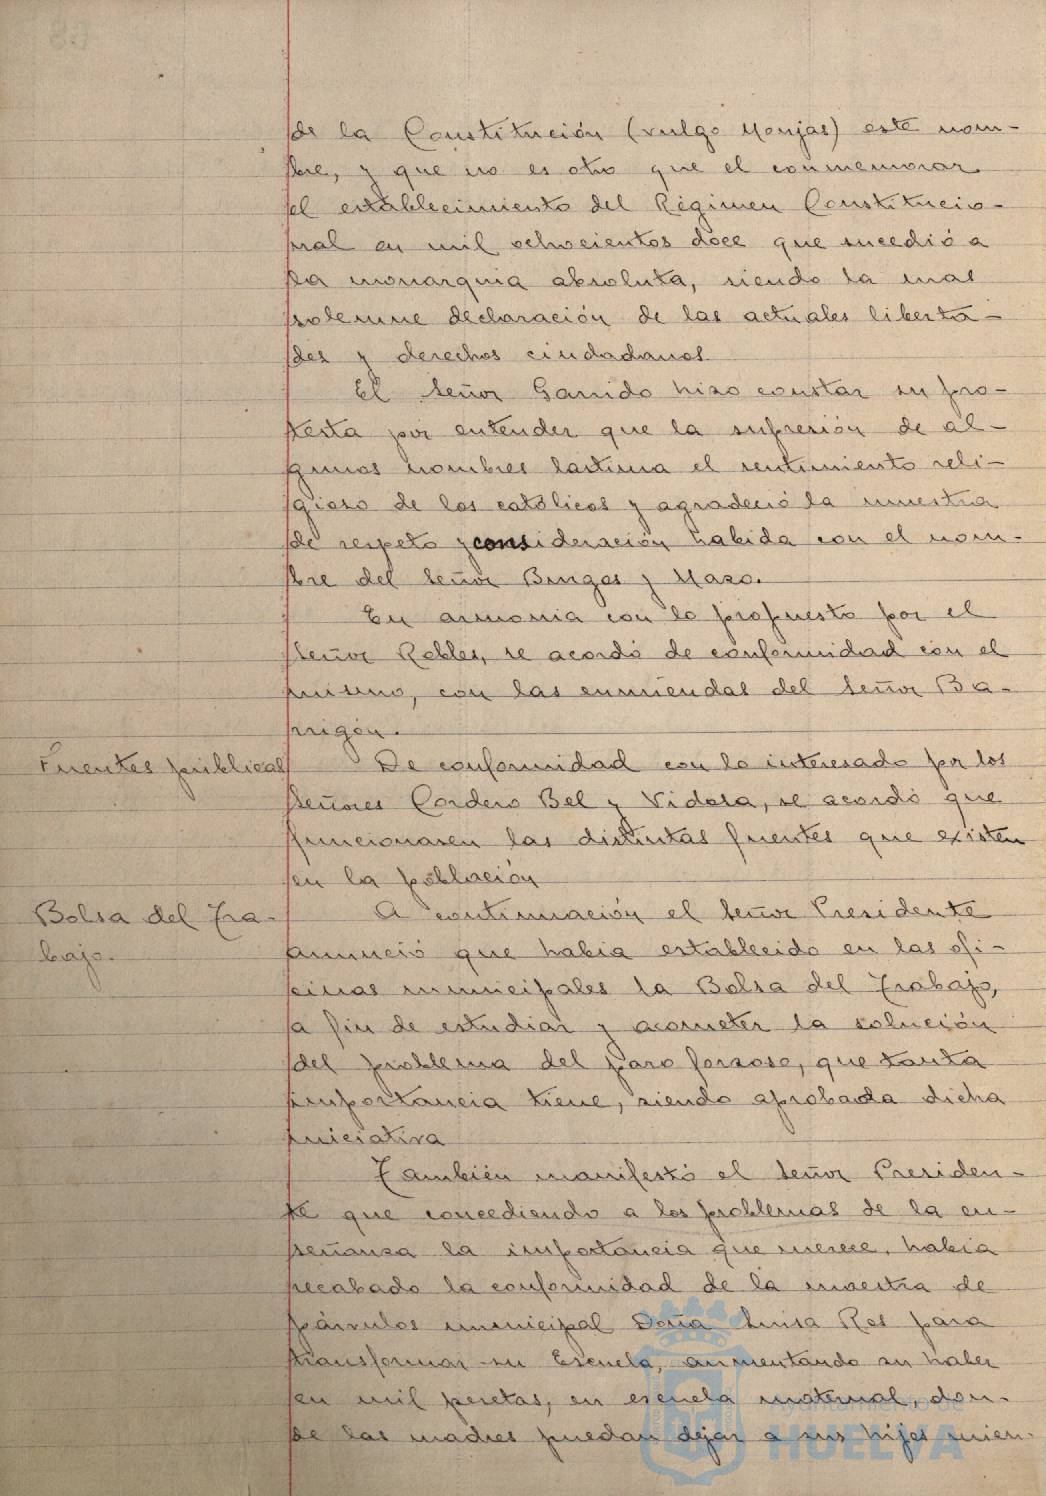 de la Constitución (vulgo Monjas) este nom-
bre, y que no es otro que el conmemorar
el establecimiento del Régimen Constitucio-
nal en mil ochocientos doce que sucedió a
la monarquia absoluta, siendo la mas
solemne declaración de las actuales liberta-
des y derechos ciudadanos.
El Señor Garrido hizo constar su pro-
testa por entender que la supresión de al-
gunos nombres lastima el sentimiento reli-
gioso de los católicos y agradeció la muestra
de respeto y consideración habida con el nom-
bre del Señor Burgos y Mazo.
En armonia con lo propuesto por el
Señor Robles, se acordó de conformidad con el
mismo, con las enmiendas del Señor Ba-
rrigón.
Fuentes públicas
De conformidad con lo interesado por los
Señores Cordero Bel y Videra, se acordó que
funcionasen las distintas fuentes que existen
en la población
Bolsa del Tra-
bajo.
A continuación el Señor Presidente
anunció que habia establecido en las ofi-
cinas municipales la Bolsa del Trabajo,
a fin de estudiar y acometer la solución
del problema del paro forzoso, que tanta
importancia tiene, siendo aprobada dicha
iniciativa
También manifestó el Señor Presiden-
te que concediendo a los problemas de la en-
señanza la importancia que merece, habia
recabado la conformidad de la maestra de
párvulos municipal Doña Luisa Ros para
transformar su Escuela, aumentando su haber
en mil pesetas, en escuela maternal, don-
de las madres puedan dejar a sus hijos mien-
Ayuntamiento de
HUELVA